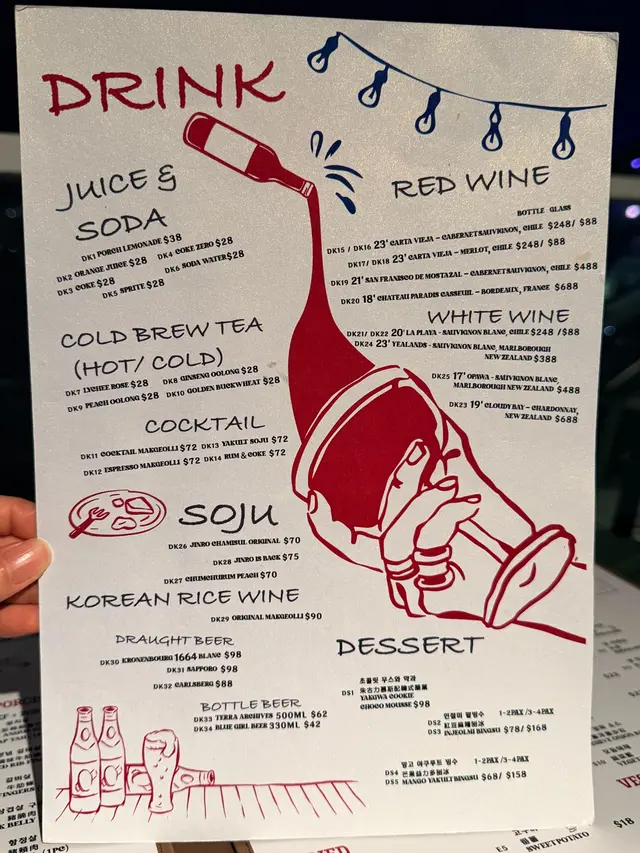 DRINK
JUICE &
SODA
DK1 PORCH LEMONADE $38
DK2 ORANGE JUICE $28 DK4 COKE ZERO $28
DK3 COKE $28 DK6 SODA WATER $28
DK5 SPRITE $28
COLD BREW TEA
(HOT/ COLD)
DK7 LYCHEE ROSE $28 DK8 GINSENG OOLONG $28
DK9 PEACH OOLONG $28 DK10 GOLDEN BUCKWHEAT $28
COCKTAIL
DK11 COCKTAIL MAKGEOLLI $72 DK13 YAKULT SOJU $72
DK12 ESPRESSO MAKGEOLLI $72 DK14 RUM & COKE $72
SOJU
DK26 JINRO CHAMISUL ORIGINAL $70
DK28 JINRO IS BACK $75
DK27 CHUMCHURUM PEACH $70
KOREAN RICE WINE
DK29 ORIGINAL MAKGEOLLI $90
DRAUGHT BEER
DK30 KRONENBOURG 1664 BLANC $98
DK31 SAPPORO $98
DK32 CARLSBERG $88
BOTTLE BEER
DK33 TERRA ARCHIVES 500ML $62
DK34 BLUE GIRL BEER 330ML $42
RED WINE
BOTTLE GLASS
DK15 / DK16 23' CARTA VIEJA – CABERNET SAUVIGNON, CHILE $248/ $88
DK17/ DK18 23' CARTA VIEJA – MERLOT, CHILE $248/ $88
DK19 21' SAN FRANISCO DE MOSTAZAL – CABERNET SAUVIGNON, CHILE $488
DK20 18' CHATEAU PARADIS CASSEUIL – BORDEAUX, FRANCE $688
WHITE WINE
DK21/ DK22 20' LA PLAYA - SAUVIGNON BLANC, CHILE $248 /$88
DK24 23' YEALANDS - SAUVIGNON BLANC, MARLBOROUGH
NEW ZEALAND $388
DK25 17' OPAWA - SAUVIGNON BLANC,
MARLBOROUGH NEW ZEALAND $488
DK23 19' CLOUDY BAY – CHARDONNAY,
NEW ZEALAND $688
DESSERT
초콜릿 무스와 약과
DS1 朱古力慕斯配韓式藥菓
YAKGWA COOKIE
CHOCO MOUSSE $98
인절미 팥빙수 1-2PAX /3-4PAX
DS2 紅豆麻糬刨冰
DS3 INJEOLMI BINGSU $78/ $168
망고 야쿠르트 빙수 1-2PAX /3-4PAX
DS4 芒果益力多刨冰
DS5 MANGO YAKULT BINGSU $68/ $158
$18
SWEET POTATO